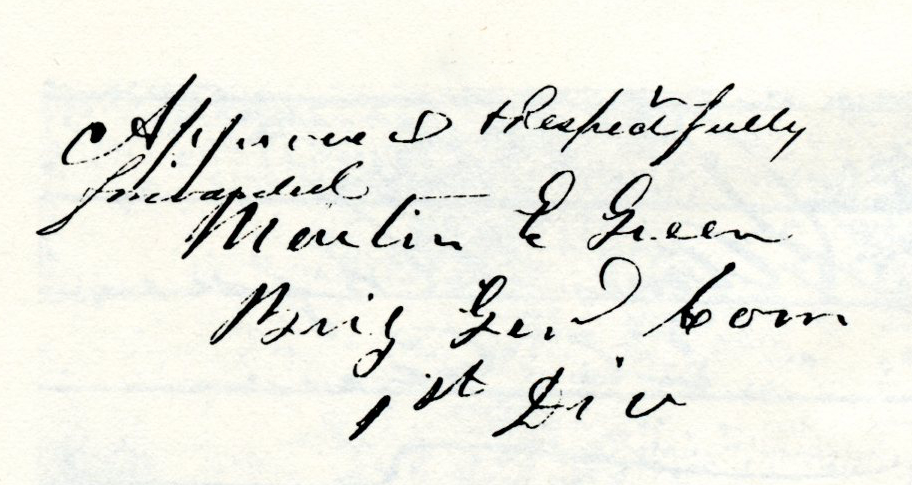 Approved & Respectfully
forwarded
Martin E Green
Brig Genl Com
1st Div